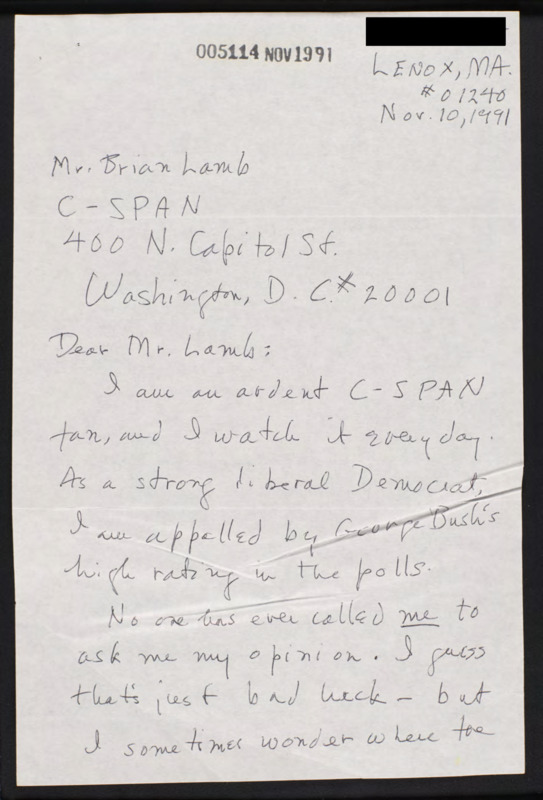 005114 NOV1991
LENOX, MA.
# 01240
Nov. 10, 1991
Mr. Brian Lamb
C-SPAN
400 N. Capitol St.
Washington, D. C. # 20001
Dear Mr. Lamb:
I am an ardent C-SPAN
fan, and I watch it every day.
As a strong liberal Democrat,
I am appelled by George Bush's
high rating in the polls.
No one has ever called me to
ask me my opinion. I guess
that's just bad luck - but
I sometimes wonder where the